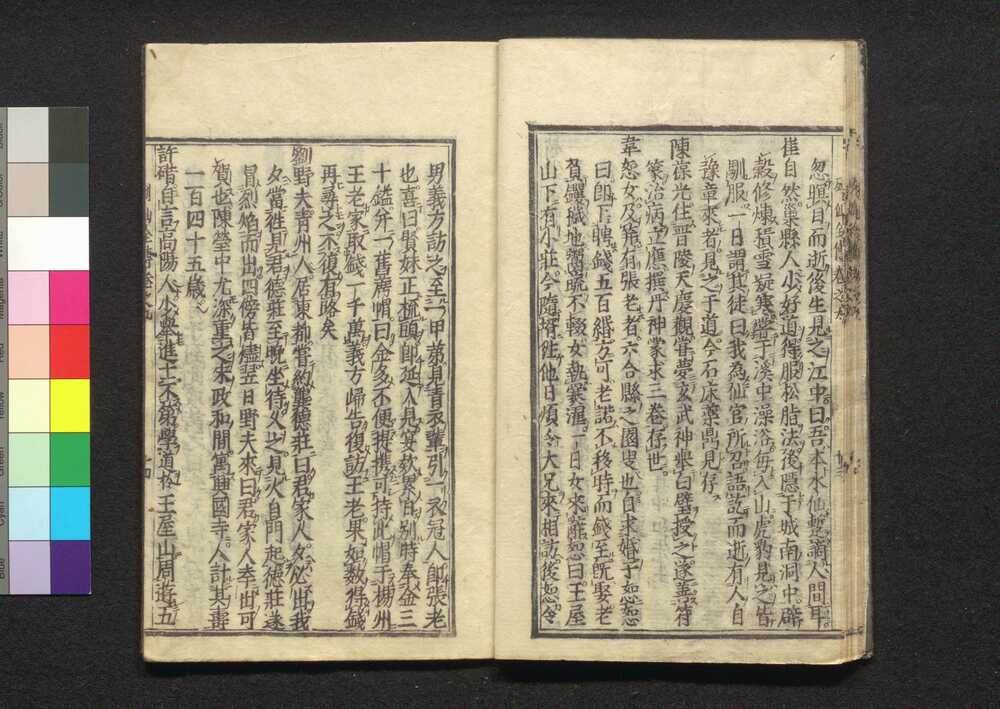 忽瞑目而逝後生見之江中曰吾本水仙暫謫人間耳
崔自然巢縣人少好道得服松脂法後隱于城南洞中辟
穀修煉積雪凝寒常于溪中澡浴每入山虎豹見之皆
馴服一日謂其徒曰我為仙官所召語訖而逝有人自
豫章來者見之于道今石床藥鼎見存
陳葆光住晋陵天慶觀嘗夢玄武神舉白璧授之遂善符
篆治病立應撰丹神蒙求三卷存世
韋恕女及笄有張老者六合縣之園叟也自求婚于恕恕
曰即下聘錢五百緡方可老諾不移時而錢至既娶老
負钁穢地鬻蔬不輟女執爨濯一日女來辭恕曰王屋
山下有小莊今隨婿往他日須令大兄來相訪後恕令
男義方訪之至一甲第見青衣輩引一衣冠人即張老
也喜曰賢妹正梳頭即延入見宴欵累日別時奉金三
十鎰并一舊席帽曰金多不便提携可持此帽于揚州
王老家取錢一千萬義方歸告復訪王老果如数得錢
再尋之不復有路矣
劉野夫青州人居東都嘗約龔德莊曰君家人夕必出我
夕當往見君德莊至晚坐待久之見火自門起德莊遂
冒烈焰而出四傍皆燼翌日野夫來曰君家人幸出可
賀也陳瑩中尤深重之宋政和間寓興國寺人計其壽
一百四十五歲
許碏自言高陽人少舉進士不第學道於王屋山周遊五